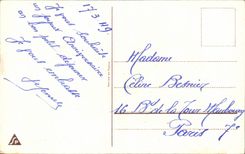 17.3.49
Je vous souhaite
un joyeux Anniversaire
un bon petit déjeuner
Je vous embrasse
Madame
Céline Besnier
16 Bd de la Tour Maubourg
Paris 7e